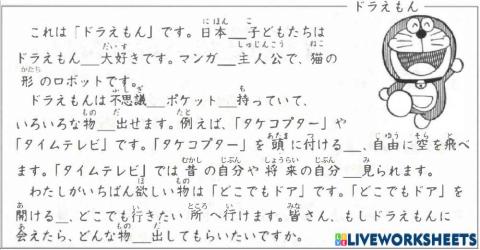 ドラえもん
これは「ドラえもん」です。日本___子どもたちは
ドラえもん___大好きです。マンガ___主人公で、猫の
形のロボットです。
ドラえもんは不思議___ポケット___持っていて、
いろいろな物___出せます。例えば、「タケコプター」や
「タイムテレビ」です。「タケコプター」を頭に付ける___、自由に空を飛べ
ます。「タイムテレビ」では昔の自分や将来の自分___見られます。
わたしがいちばん欲しい物は「どこでもドア」です。「どこでもドア」を
開ける___、どこでも行きたい所へ行けます。皆さん、もしドラえもんに
会えたら、どんな物___出してもらいたいですか。
LIVEWORKSHEETS